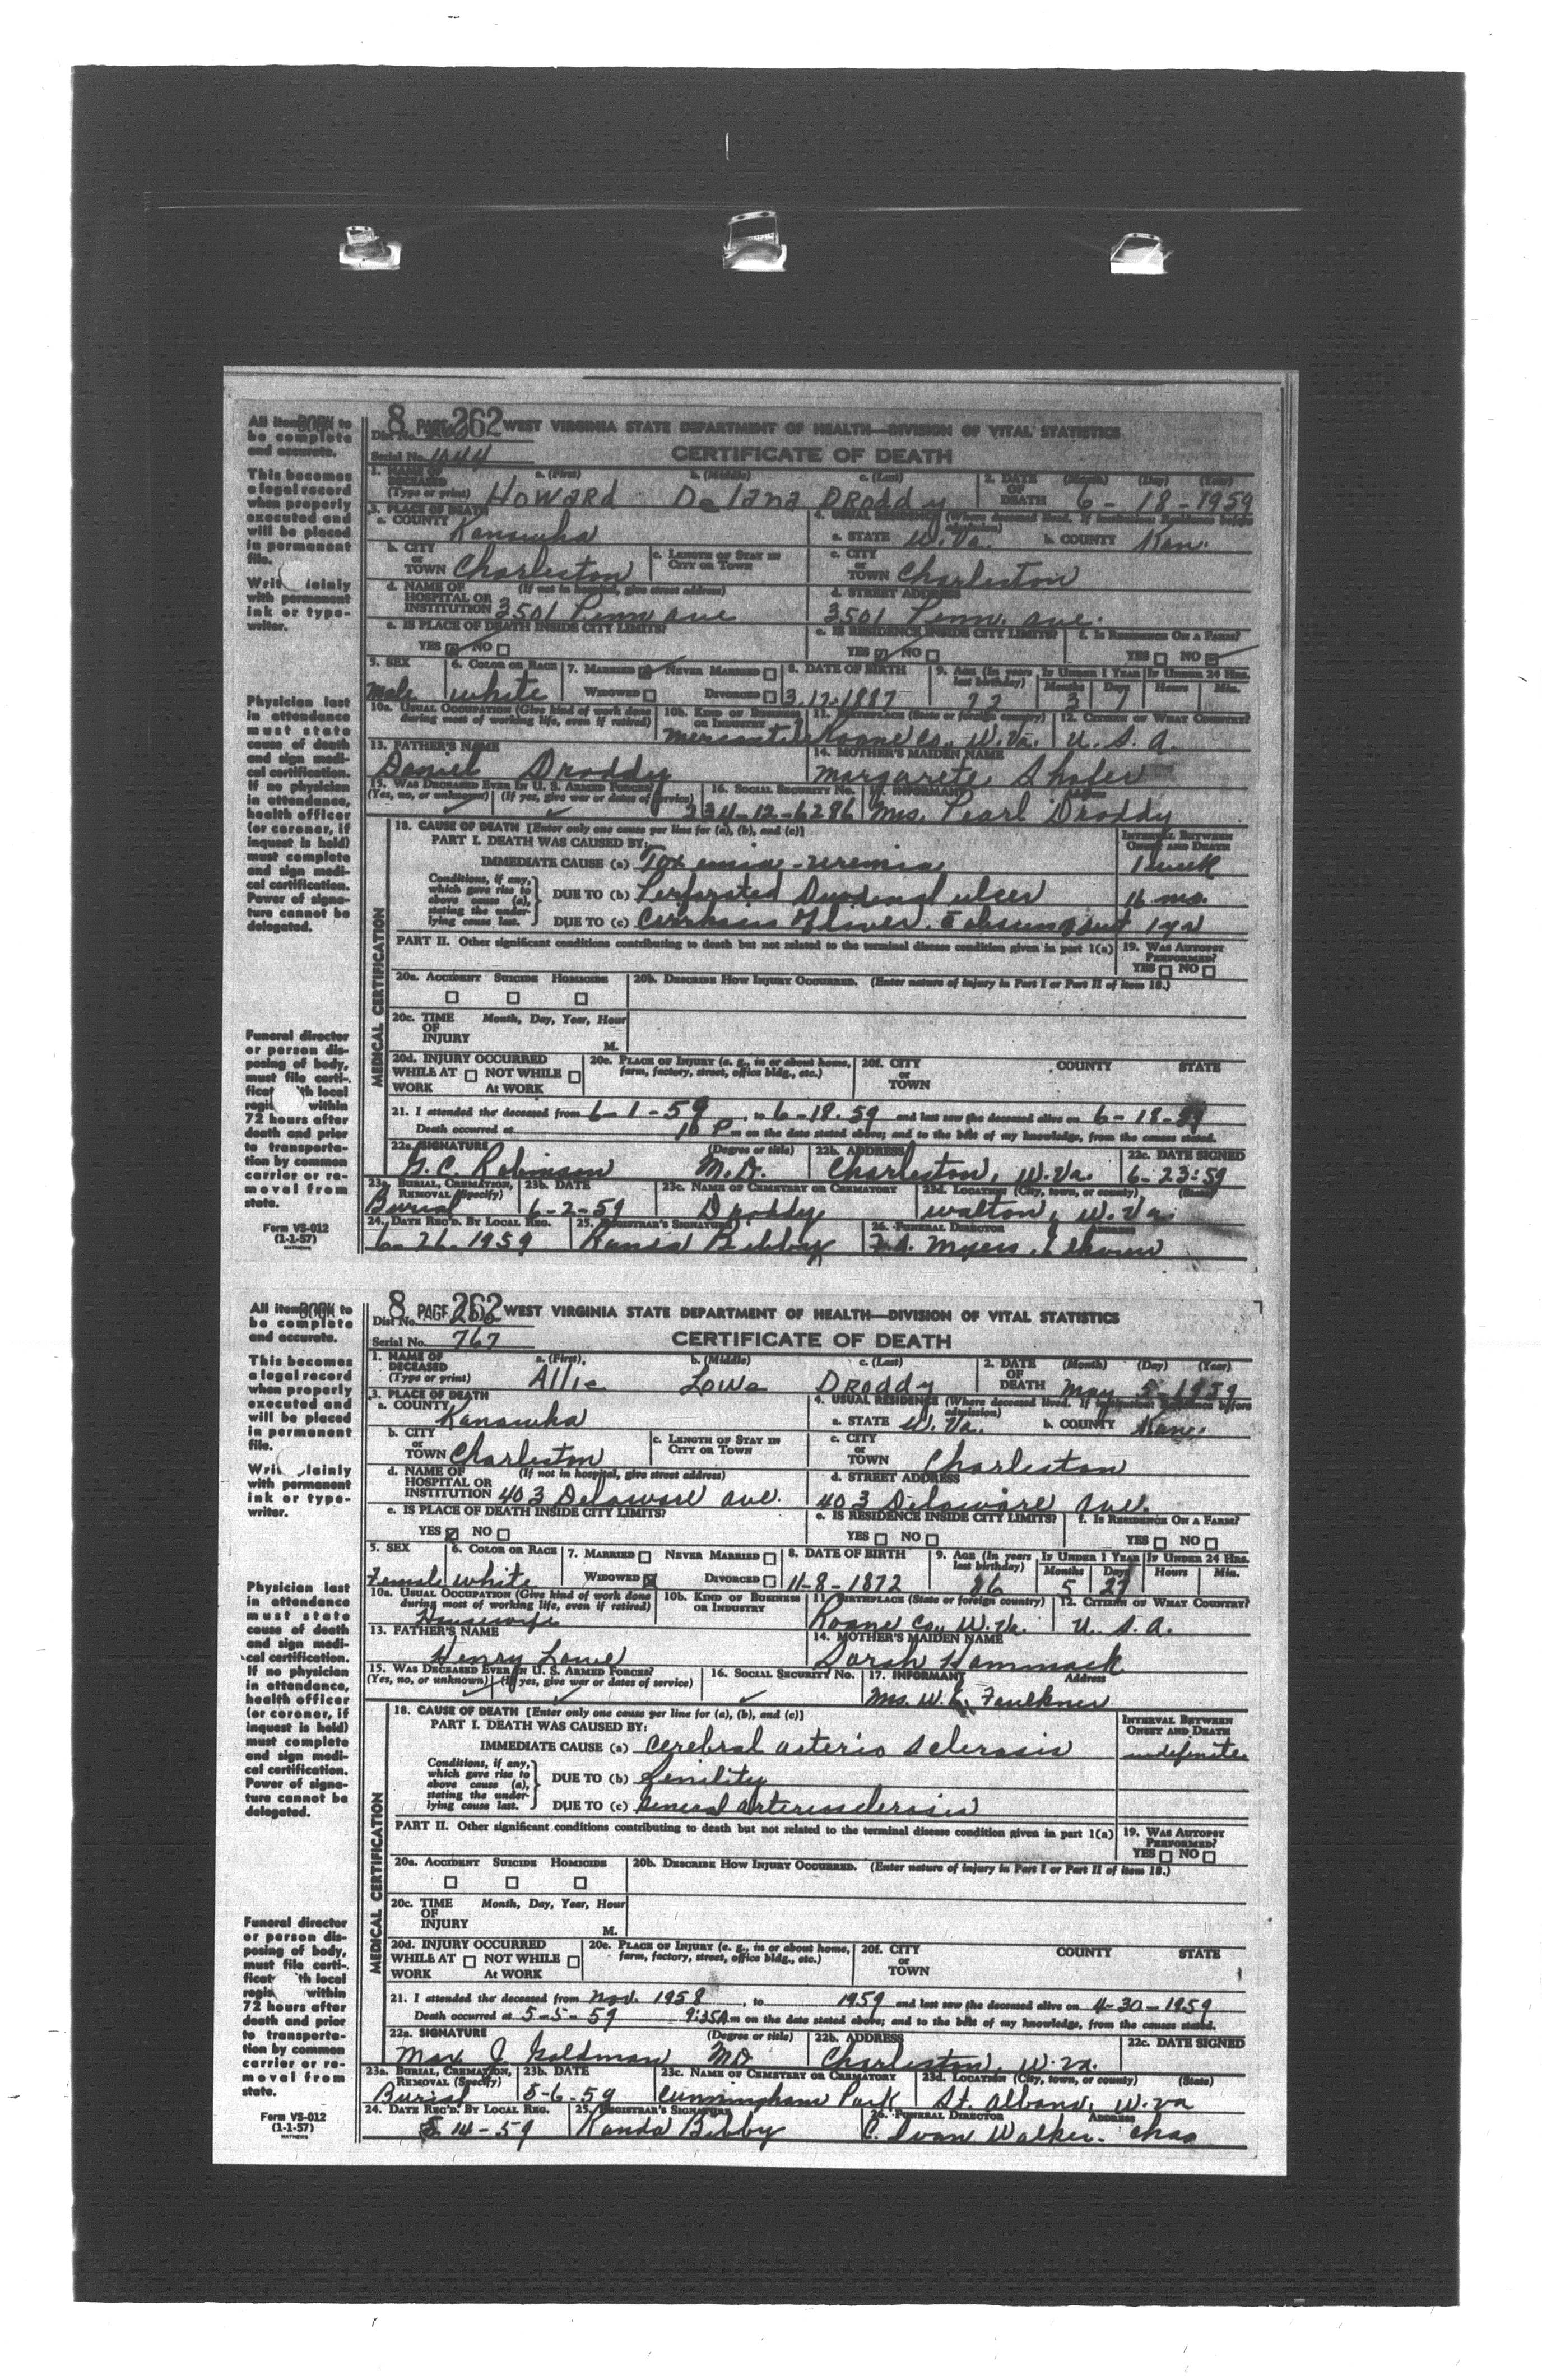 All items BOOK to
be complete
and accurate.
This becomes
a legal record
when properly
executed and
will be placed
in permanent
file.
with permanent
ink or type-
writer.
Physician last
in attendance
must state
cause of death
and sign medi-
cal certification.
If no physician
in attendance,
health officer
(or coroner, if
inquest is held)
must complete
and sign medi-
cal certification.
Power of signa-
ture cannot be
delegated.
Funeral director
or person dis-
posing of body,
must file certi-
local
within
72 hours after
death and prior
to transporta-
tion by common
carrier or re-
moval from
state.
Form VS-012
(1-1-57)
8 PAGE 262 WEST VIRGINIA STATE DEPARTMENT OF HEALTH—DIVISION OF VITAL STATISTICS
Dist No.
Serial No. CERTIFICATE OF DEATH
1. NAME OF DECEASED (Type or print) a. (First) b. (Middle) c. (Last) 2. DATE OF DEATH (Month) (Day) (Year)
Howard Delana Droddy 6-18-1959
3. PLACE OF DEATH 4. USUAL RESIDENCE (Where deceased lived. If institution: Residence before admission)
a. COUNTY Kanawha a. STATE W. Va. b. COUNTY Kan.
b. CITY or TOWN Charleston c. LENGTH OF STAY IN CITY OR TOWN c. CITY or TOWN Charleston
d. NAME OF HOSPITAL OR INSTITUTION (If not in hospital, give street address) 3501 Penn ave d. STREET ADDRESS 3501 Penn. ave.
e. IS PLACE OF DEATH INSIDE CITY LIMITS? e. IS RESIDENCE INSIDE CITY LIMITS? f. IS RESIDENCE ON A FARM?
YES NO YES NO YES NO
5. SEX 6. COLOR OR RACE 7. MARRIED NEVER MARRIED 8. DATE OF BIRTH 9. AGE (In years last birthday) IF UNDER 1 YEAR IF UNDER 24 HRS.
Male white WIDOWED DIVORCED 3-17-1887 72 Months 3 Days 1 Hours Min.
10a. USUAL OCCUPATION (Give kind of work done during most of working life, even if retired) 10b. KIND OF BUSINESS OR INDUSTRY 11. BIRTHPLACE (State or foreign country) 12. CITIZEN OF WHAT COUNTRY?
Mercantile Roane Co. W. Va. U. S. A.
13. FATHER'S NAME 14. MOTHER'S MAIDEN NAME
Daniel Droddy Margarete Shafer
15. WAS DECEASED EVER IN U. S. ARMED FORCES? 16. SOCIAL SECURITY NO. 17. INFORMANT Address
(Yes, no, or unknown) (If yes, give war or dates of service) 234-12-6286 Mrs. Pearl Droddy
MEDICAL CERTIFICATION
18. CAUSE OF DEATH [Enter only one cause per line for (a), (b), and (c)] INTERVAL BETWEEN ONSET AND DEATH
PART I. DEATH WAS CAUSED BY:
IMMEDIATE CAUSE (a) Toxemia - uremia 1 week
Conditions, if any, which gave rise to above cause (a), stating the underlying cause last.
DUE TO (b) Perforated Duodenal ulcer mo.
DUE TO (c) of liver. 1 yr
PART II. Other significant conditions contributing to death but not related to the terminal disease condition given in part 1(a) 19. WAS AUTOPSY PERFORMED?
YES NO
20a. ACCIDENT SUICIDE HOMICIDE 20b. DESCRIBE HOW INJURY OCCURRED. (Enter nature of injury in Part I or Part II of item 18.)
20c. TIME OF INJURY Month, Day, Year, Hour M.
20d. INJURY OCCURRED WHILE AT WORK NOT WHILE AT WORK 20e. PLACE OF INJURY (e. g., in or about home, farm, factory, street, office bldg., etc.) 20f. CITY or TOWN COUNTY STATE
21. I attended the deceased from 6-1-59, to 6-18-59 and last saw the deceased alive on 6-18-59
Death occurred at 10 P m on the date stated above; and to the best of my knowledge, from the causes stated.
22a. SIGNATURE (Degree or title) 22b. ADDRESS 22c. DATE SIGNED
G. C. Robinson M.D. Charleston, W. Va. 6-23-59
23a. BURIAL, CREMATION, REMOVAL (Specify) 23b. DATE 23c. NAME OF CEMETERY OR CREMATORY 23d. LOCATION (City, town, or county) (State)
Burial 6-2-59 Droddy Walton, W. Va.
24. DATE REC'D. BY LOCAL REG. 25. REGISTRAR'S SIGNATURE 26. FUNERAL DIRECTOR ADDRESS
6-26-1959 Bibby Myers
All items BOOK to
be complete
and accurate.
This becomes
a legal record
when properly
executed and
will be placed
in permanent
file.
with permanent
ink or type-
writer.
Physician last
in attendance
must state
cause of death
and sign medi-
cal certification.
If no physician
in attendance,
health officer
(or coroner, if
inquest is held)
must complete
and sign medi-
cal certification.
Power of signa-
ture cannot be
delegated.
Funeral director
or person dis-
posing of body,
must file certi-
local
within
72 hours after
death and prior
to transporta-
tion by common
carrier or re-
moval from
state.
Form VS-012
(1-1-57)
8 PAGE 262 WEST VIRGINIA STATE DEPARTMENT OF HEALTH—DIVISION OF VITAL STATISTICS
Dist No.
Serial No. 767 CERTIFICATE OF DEATH
1. NAME OF DECEASED (Type or print) a. (First) b. (Middle) c. (Last) 2. DATE OF DEATH (Month) (Day) (Year)
Allie Lowe Droddy May 5-1959
3. PLACE OF DEATH 4. USUAL RESIDENCE (Where deceased lived. If institution: Residence before admission)
a. COUNTY Kanawha a. STATE W. Va. b. COUNTY Kan.
b. CITY or TOWN Charleston c. LENGTH OF STAY IN CITY OR TOWN c. CITY or TOWN Charleston
d. NAME OF HOSPITAL OR INSTITUTION (If not in hospital, give street address) 403 Delaware ave. d. STREET ADDRESS 403 Delaware ave.
e. IS PLACE OF DEATH INSIDE CITY LIMITS? e. IS RESIDENCE INSIDE CITY LIMITS? f. IS RESIDENCE ON A FARM?
YES NO YES NO YES NO
5. SEX 6. COLOR OR RACE 7. MARRIED NEVER MARRIED 8. DATE OF BIRTH 9. AGE (In years last birthday) IF UNDER 1 YEAR IF UNDER 24 HRS.
Female White WIDOWED DIVORCED 11-8-1872 86 Months 5 Days 27 Hours Min.
10a. USUAL OCCUPATION (Give kind of work done during most of working life, even if retired) 10b. KIND OF BUSINESS OR INDUSTRY 11. BIRTHPLACE (State or foreign country) 12. CITIZEN OF WHAT COUNTRY?
Housewife Roane Co., W. Va. U. S. A.
13. FATHER'S NAME 14. MOTHER'S MAIDEN NAME
Henry Lowe Sarah Hammack
15. WAS DECEASED EVER IN U. S. ARMED FORCES? 16. SOCIAL SECURITY NO. 17. INFORMANT Address
(Yes, no, or unknown) (If yes, give war or dates of service) Mrs. W. E. Faulkner
MEDICAL CERTIFICATION
18. CAUSE OF DEATH [Enter only one cause per line for (a), (b), and (c)] INTERVAL BETWEEN ONSET AND DEATH
PART I. DEATH WAS CAUSED BY:
IMMEDIATE CAUSE (a) Cerebral arterio sclerosis indefinite
Conditions, if any, which gave rise to above cause (a), stating the underlying cause last.
DUE TO (b) Senility
DUE TO (c) General arteriosclerosis
PART II. Other significant conditions contributing to death but not related to the terminal disease condition given in part 1(a) 19. WAS AUTOPSY PERFORMED?
YES NO
20a. ACCIDENT SUICIDE HOMICIDE 20b. DESCRIBE HOW INJURY OCCURRED. (Enter nature of injury in Part I or Part II of item 18.)
20c. TIME OF INJURY Month, Day, Year, Hour M.
20d. INJURY OCCURRED WHILE AT WORK NOT WHILE AT WORK 20e. PLACE OF INJURY (e. g., in or about home, farm, factory, street, office bldg., etc.) 20f. CITY or TOWN COUNTY STATE
21. I attended the deceased from Nov. 1958, to 1959 and last saw the deceased alive on 4-30-1959
Death occurred at 5-5-59 9:35A m on the date stated above; and to the best of my knowledge, from the causes stated.
22a. SIGNATURE (Degree or title) 22b. ADDRESS 22c. DATE SIGNED
Max J. Goldman MD Charleston, W. Va.
23a. BURIAL, CREMATION, REMOVAL (Specify) 23b. DATE 23c. NAME OF CEMETERY OR CREMATORY 23d. LOCATION (City, town, or county) (State)
Burial 5-6-59 Cunningham Park St. Albans, W. Va
24. DATE REC'D. BY LOCAL REG. 25. REGISTRAR'S SIGNATURE 26. FUNERAL DIRECTOR ADDRESS
5 14-59 Bibby C. Ivan Walker. Chas